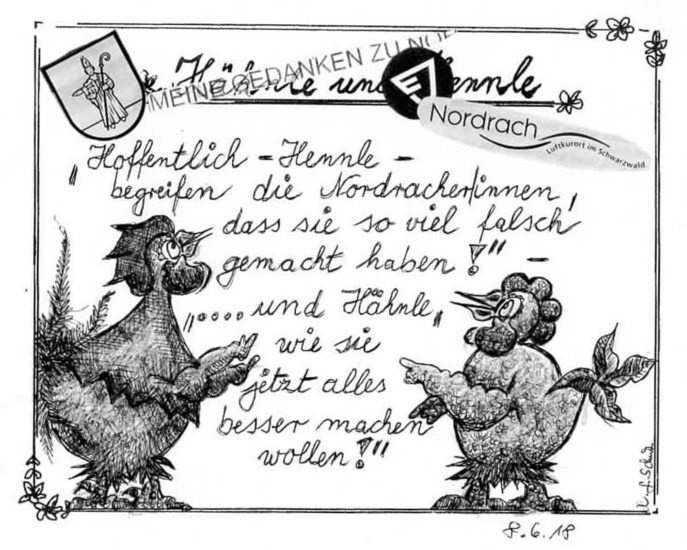 MEINE GEDANKEN ZU
Hähnle und Hennle
Nordrach
Luftkurort im Schwarzwald
"Hoffentlich - Hennle -
begreifen die Nordracher/innen,
dass sie so viel falsch
gemacht haben!" -
".... und Hähnle,
wie sie
jetzt alles
besser machen
wollen!"
8.6.18